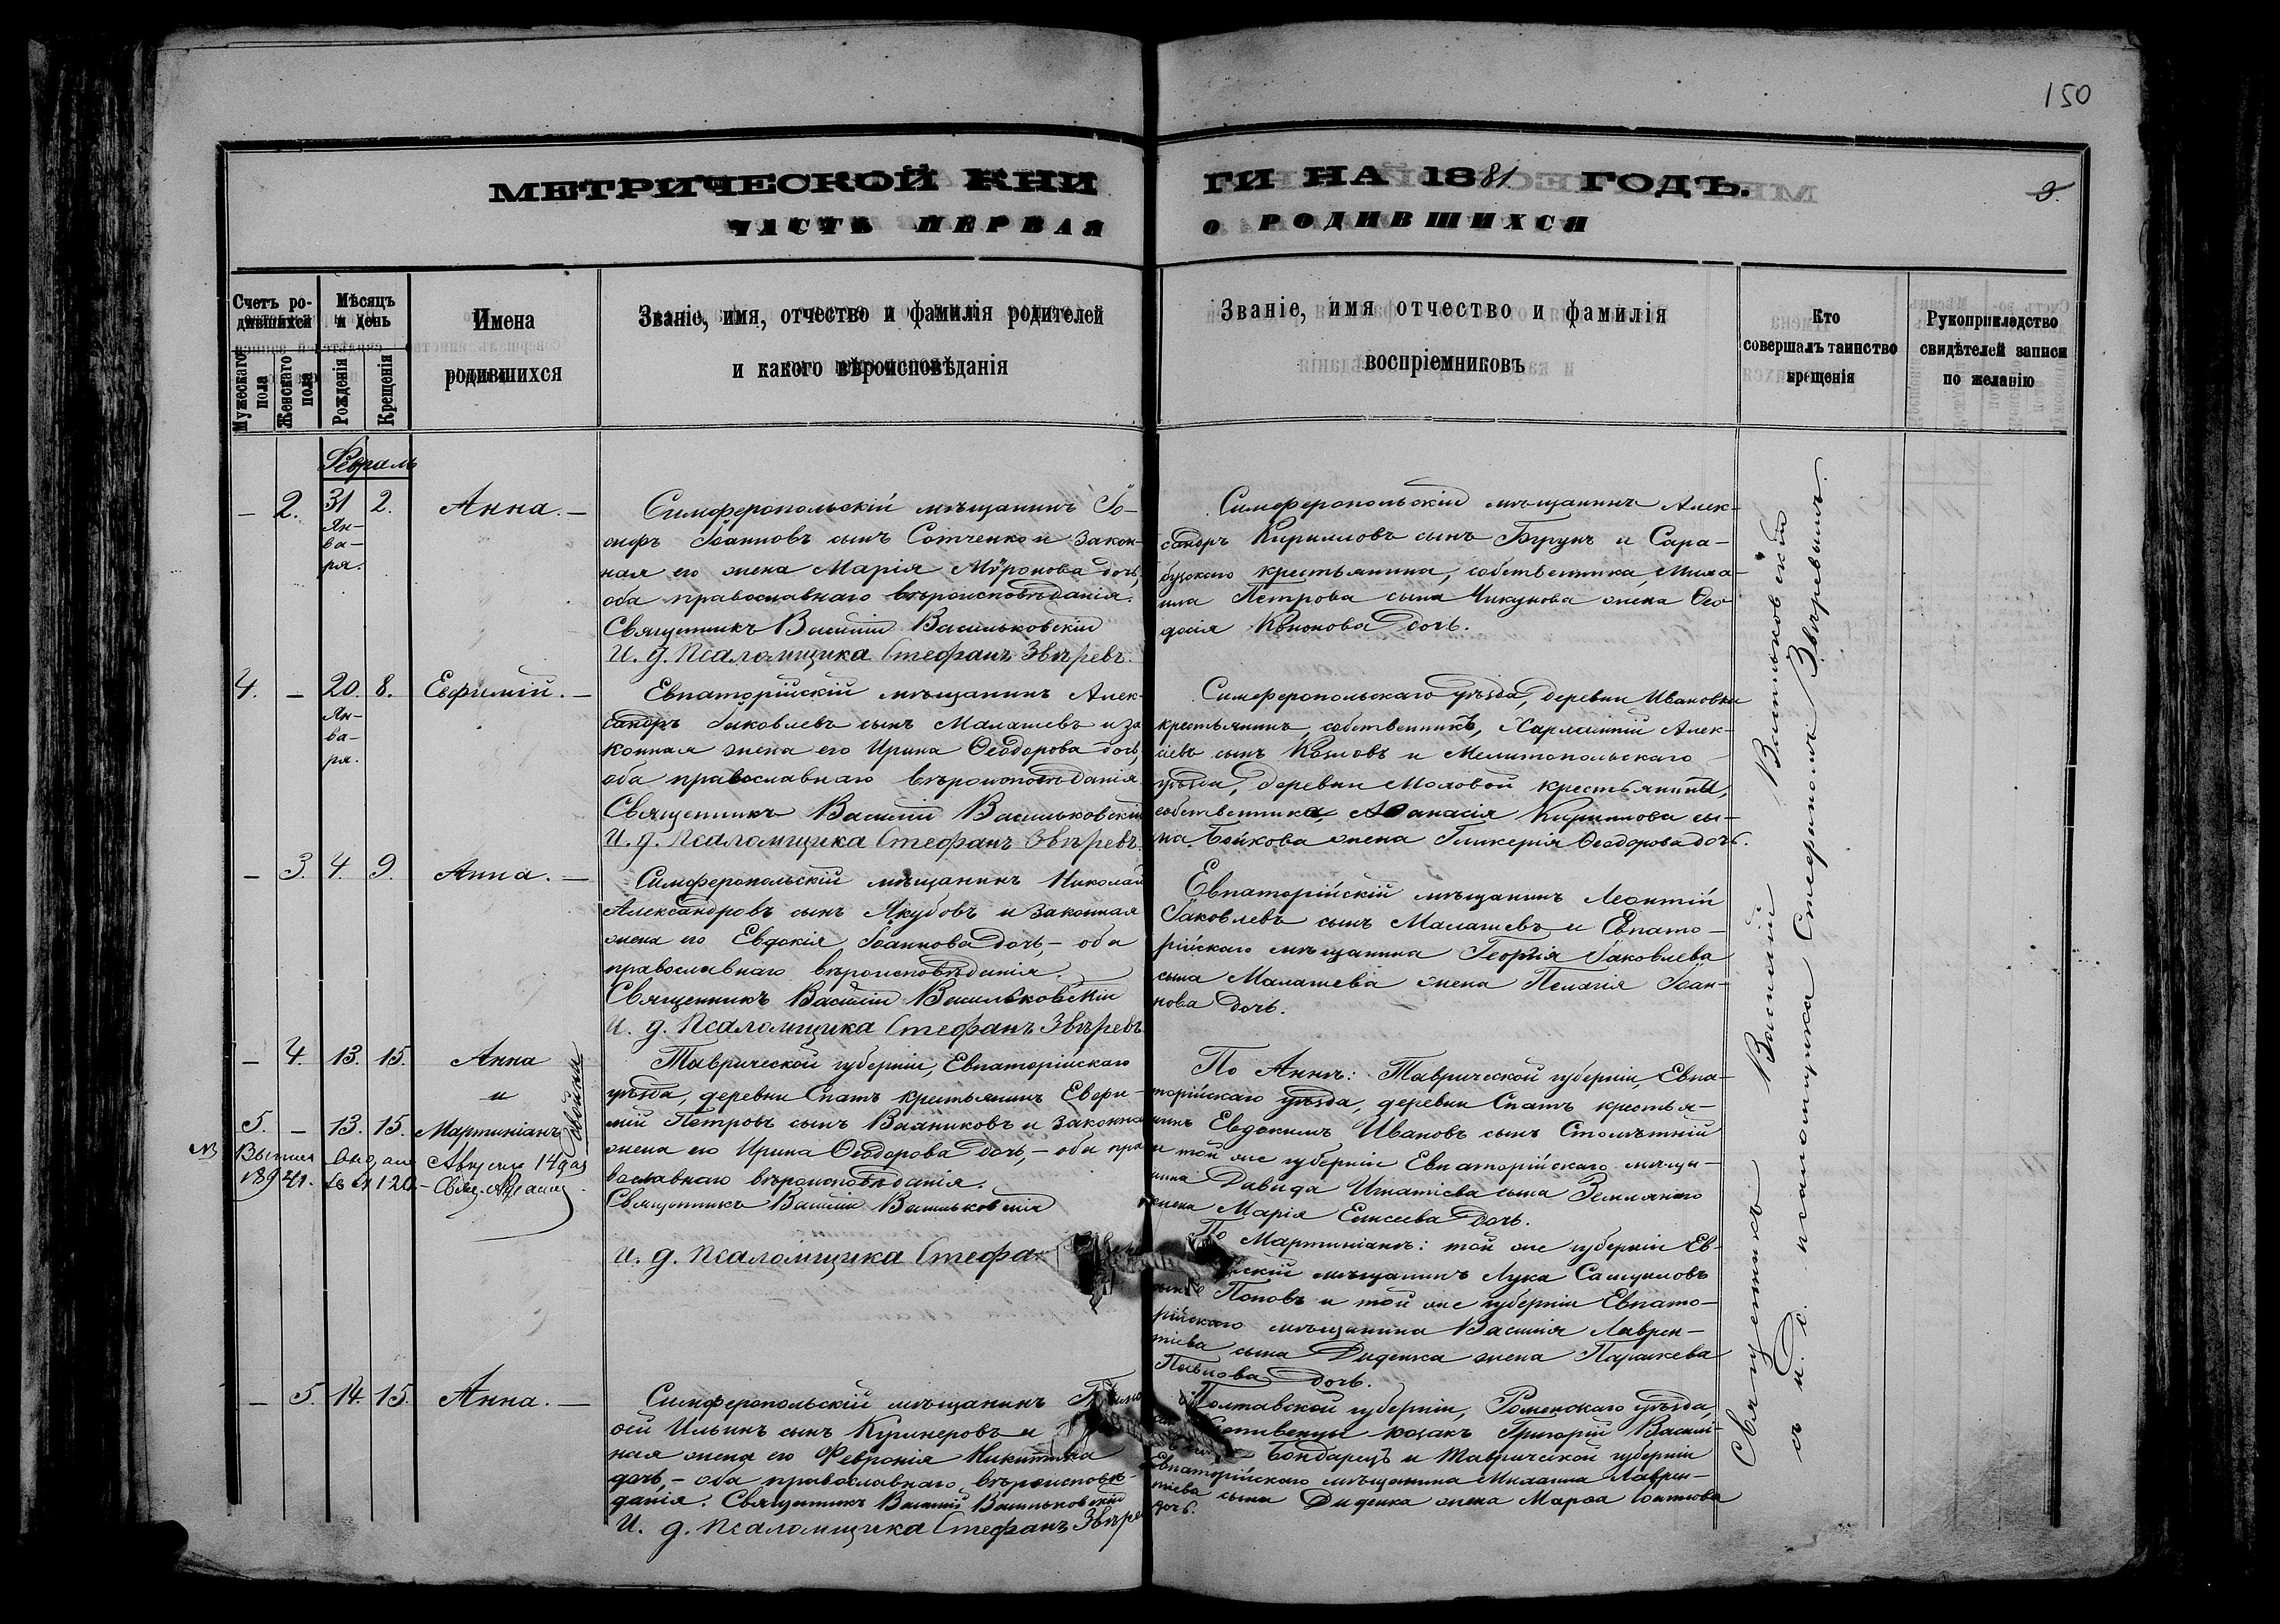 150
МЕТРИЧЕСКОЙ КНИ
ЧАСТЬ ПЕРВАЯ
ГИ НА 1881 ГОДЪ.
О РОДИВШИХСЯ
Счетъ ро-
дившихся
Мужескаго
пола
Женскаго
пола
Мѣсяцъ
и день
Рожденія
Крещенія
Имена
родившихся
Званіе, имя, отчество и фамилія родителей
и какого вѣроисповѣданія
Званіе, имя отчество и фамилія
воспріемниковъ
Кто
совершалъ таинство
крещенія
Рукоприкладство
свидѣтелей записи
по желанію
Февраль
— 2. 31 2. Анна. —
Ян-
ва-
ря.
Симферопольскій мѣщанинъ Іо-
сифъ Іоанновъ сынъ Сотченко и закон-
ная его жена Марія Мѵронова дочь,
оба православнаго вѣроисповѣданія.
Священникъ Василій Васильковскій
И. д. Псаломщика Стефанъ Звѣревъ.
Симферопольскій мѣщанинъ Алек-
сандръ Кирилловъ сынъ Бурунъ и Сара-
бузскаго крестьянина, собственника, Миха-
ила Петрова сына Чикунова жена Ѳео-
досія Кононова дочь.
4. — 20. 8. Евфимій. —
Ян-
ва-
ря.
Евпаторійскій мѣщанинъ Алек-
сандръ Іаковлевъ сынъ Малашевъ и за
конная жена его Ирина Ѳеодорова дочь,
оба православнаго вѣроисповѣданія
Священникъ Василій Васильковскій
И. д. Псаломщика Стефанъ Звѣревъ.
Симферопольскаго уѣзда, деревни Ивановки
крестьянинъ, собственникъ, Харлампій Алек-
сіевъ сынъ Козловъ и Мелитопольскаго
уѣзда, деревни Моловой крестьянина,
собственника, Аѳанасія Кириллова сы-
на Бойкова жена Гликерія Ѳеодорова дочь.
— 3. 4. 9. Анна. —
Симферопольскій мѣщанинъ Николай
Александровъ сынъ Якубовъ и законная
жена его Евдокія Іоаннова дочь, — оба
православнаго вѣроисповѣданія.
Священникъ Василій Васильковскій
И. д. Псаломщика Стефанъ Звѣревъ
Евпаторійскій мѣщанинъ Леонтій
Іаковлевъ сынъ Малашевъ и Евпато-
рійскаго мѣщанина Георгія Іаковлева
сына Малашева жена Пелагія Іоан-
нова дочь.
— 4. 13. 15. Анна
и
5. — 13. 15. Мартиніанъ
двойни
Таврической губерніи, Евпаторійскаго
уѣзда, деревни Спатъ крестьянинъ Евфи-
мій Петровъ сынъ Ваяниковъ и законна
жена его Ирина Ѳеодорова дочь, — оба пра
вославнаго вѣроисповѣданія.
Священникъ Василій Васильковскій
И. д. Псаломщика Стефан
По Аннѣ: Таврической губерніи, Евпа-
торійскаго уѣзда, деревни Спатъ крестья-
нинъ Евдокимъ Ивановъ сынъ Столѣтній
и той же губерніи Евпаторійскаго мѣща-
нина Давида Игнатіева сына Земляного
жена Марія Елисеева дочь.
По Мартиніанѣ: той же губерніи Ев-
скій мѣщанинъ Лука Самуиловъ
сынъ Поповъ и той же губерніи Евпато-
рійскаго мѣщанина Василія Лаврен-
тіева сына Диденка жена Параскева
Павлова дочь.
— 5. 14. 15. Анна. —
Симферопольскій мѣщанинъ Тимо
ѳей Ильинъ сынъ Кушнеровъ и
ная жена его Февронія Никитина
дочь, — оба православнаго вѣроисповѣ-
данія. Священникъ Василій Васильковскій
И. д. Псаломщика Стефанъ Звѣре
Полтавской губерніи, Роменскаго уѣзда,
козакъ Григорій Васил-
Бондарецъ и Таврической губерніи
Евпаторійскаго мѣщанина Михаила Лаврен-
тіева сына Диденка жена Марѳа
дочь.
Священникъ Василій Васильковскій
и. д. псаломщика Стефанъ Звѣревъ.